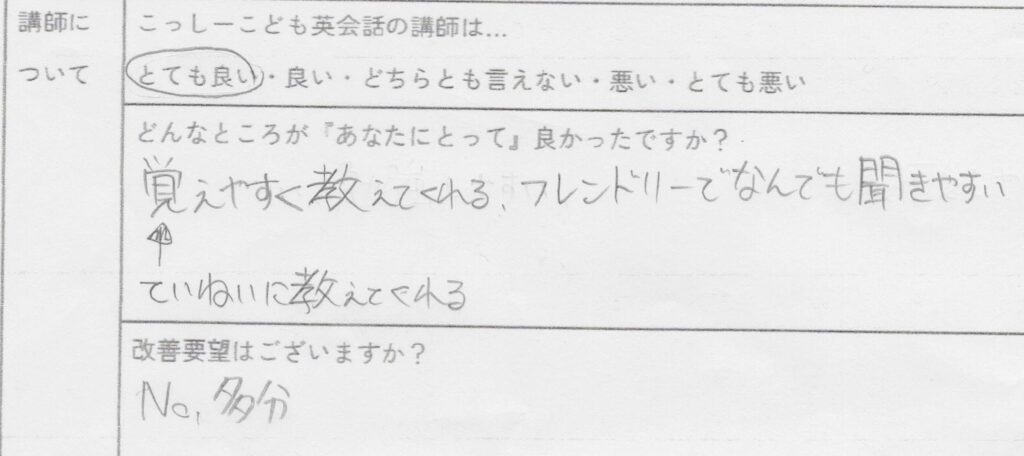 講師に
ついて
こっしーこども英会話の講師は…
とても良い・良い・どちらとも言えない・悪い・とても悪い
どんなところが『あなたにとって』良かったですか？
覚えやすく教えてくれる、フレンドリーでなんでも聞きやすい
↑
ていねいに教えてくれる
改善要望はございますか？
No, 多分